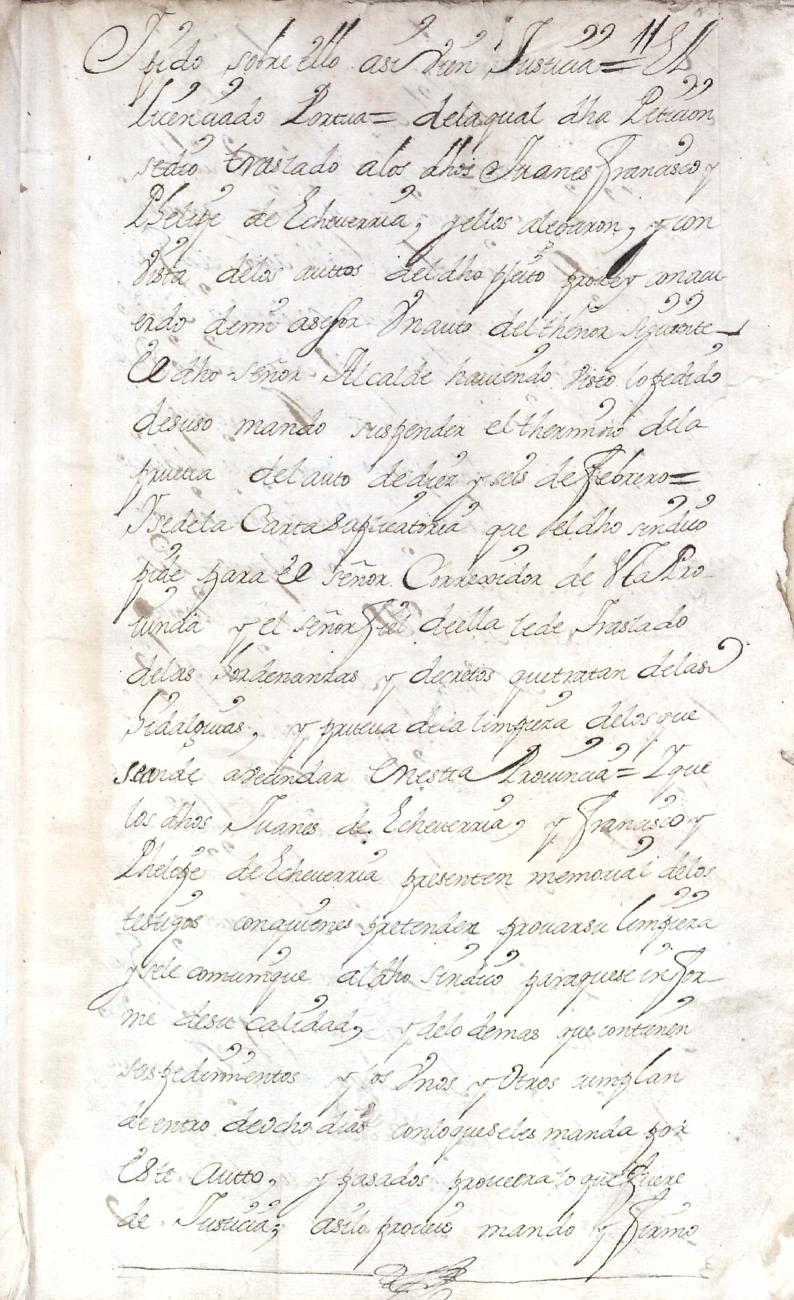 Ypido sobre ello asi vien Justicia = El
licenciado Portua = delaqual dha Peticion
sedio traslado alos dhos Juanes Francisco y
Phelipe de Echeverria, yellos alegaron, y con
Vista delos auttos deldho pleito probey conacu
erdo demi asesor Vnauto delthenor siguiente
El dho señor Alcalde hauiendo visto lopedido
desuso mando suspender elthermino dela
prueua delauto dediez y seis de Febrero =
Ysedela Carta suplicatoria que eldho sindico
pide para el señor Correxidor de Vta Pro
uincia y el señor Fiel deella sede Traslado
delas hordenanzas y decretos quetratan delas
hidalguias, y prueua dela limpieza delosque
sehande avecindar Enestta Prouincia = Yque
los dhos Juanes de Echeverria, y Francisco y
Phelipe de Echeverria presenten memorial delos
testigos conquienes pretenden prouarsu limpieza
ysele comunique aldho sindico paraquese infor
me desu calidad, y delo demas que contienen
sus pedimentos y los Vnos y Otros cumplan
dentro deocho dias conloqueseles manda por
Este Autto, y pasados proueera lo que fuere
de Justicia, asilo proueio mando y firmo